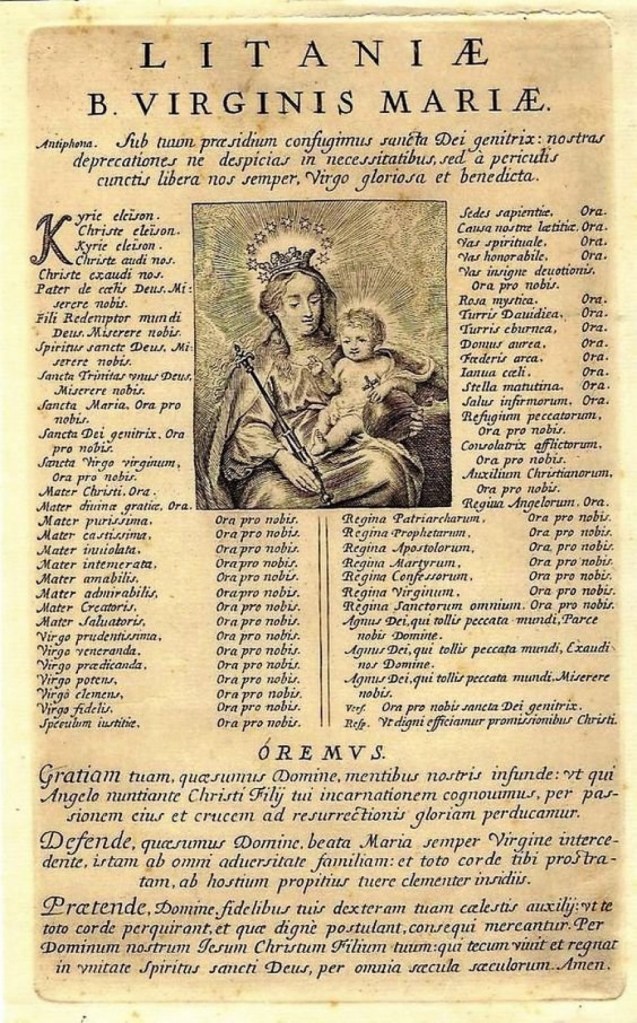 LITANIÆ
B. VIRGINIS MARIÆ.
Antiphona. Sub tuum præsidium confugimus sancta Dei genitrix: nostras
deprecationes ne despicias in necessitatibus, sed à periculis
cunctis libera nos semper, Virgo gloriosa et benedicta.
Kyrie eleison.
Christe eleison.
Kyrie eleison.
Christe audi nos.
Christe exaudi nos.
Pater de cœlis Deus, Mi-
serere nobis.
Fili Redemptor mundi
Deus. Miserere nobis.
Spiritus sancte Deus, Mi-
serere nobis.
Sancta Trinitas vnus Deus,
Miserere nobis.
Sancta Maria, Ora pro
nobis.
Sancta Dei genitrix, Ora
pro nobis.
Sancta Virgo virginum,
Ora pro nobis.
Mater Christi, Ora.
Mater diuinæ gratiæ, Ora.
Mater purissima, Ora pro nobis.
Mater castissima, Ora pro nobis.
Mater inuiolata, Ora pro nobis.
Mater intemerata, Ora pro nobis.
Mater amabilis, Ora pro nobis.
Mater admirabilis, Ora pro nobis.
Mater Creatoris, Ora pro nobis.
Mater Saluatoris, Ora pro nobis.
Virgo prudentissima, Ora pro nobis.
Virgo veneranda, Ora pro nobis.
Virgo prædicanda, Ora pro nobis.
Virgo potens, Ora pro nobis.
Virgo clemens, Ora pro nobis.
Virgo fidelis. Ora pro nobis.
Speculum iustitiæ, Ora pro nobis.
Sedes sapientiæ, Ora.
Causa nostræ lætitiæ, Ora.
Vas spirituale, Ora.
Vas honorabile, Ora.
Vas insigne deuotionis,
Ora pro nobis.
Rosa mystica, Ora.
Turris Dauidica, Ora.
Turris eburnea, Ora.
Domus aurea, Ora.
Fœderis arca, Ora.
Ianua cœli, Ora.
Stella matutina, Ora.
Salus infirmorum, Ora.
Refugium peccatorum,
Ora pro nobis.
Consolatrix afflictorum,
Ora pro nobis.
Auxilium Christianorum,
Ora pro nobis.
Regina Angelorum, Ora.
Regina Patriarcharum, Ora pro nobis.
Regina Prophetarum, Ora pro nobis.
Regina Apostolorum, Ora pro nobis.
Regina Martyrum, Ora pro nobis.
Regina Confessorum, Ora pro nobis.
Regina Virginum, Ora pro nobis.
Regina Sanctorum omnium, Ora pro nobis.
Agnus Dei, qui tollis peccata mundi, Parce
nobis Domine.
Agnus Dei, qui tollis peccata mundi, Exaudi
nos Domine.
Agnus Dei, qui tollis peccata mundi. Miserere
nobis.
Vers. Ora pro nobis sancta Dei genitrix.
Resp. Vt digni efficiamur promissionibus Christi.
ÓREMVS.
Gratiam tuam, quæsumus Domine, mentibus nostris infunde: vt qui
Angelo nuntiante Christi Filij tui incarnationem cognouimus, per pas-
sionem eius et crucem ad resurrectionis gloriam perducamur.
Defende, quæsumus Domine, beata Maria semper Virgine interce-
dente, istam ab omni aduersitate familiam: et toto corde tibi prostra-
tam, ab hostium propitius tuere clementer insidiis.
Prætende, Domine, fidelibus tuis dexteram tuam cælestis auxilij: vt te
toto corde perquirant, et quæ dignè postulant, consequi mereantur. Per
Dominum nostrum Iesum Christum Filium tuum: qui tecum viuit et regnat
in vnitate Spiritus sancti Deus, per omnia sæcula sæculorum. Amen.